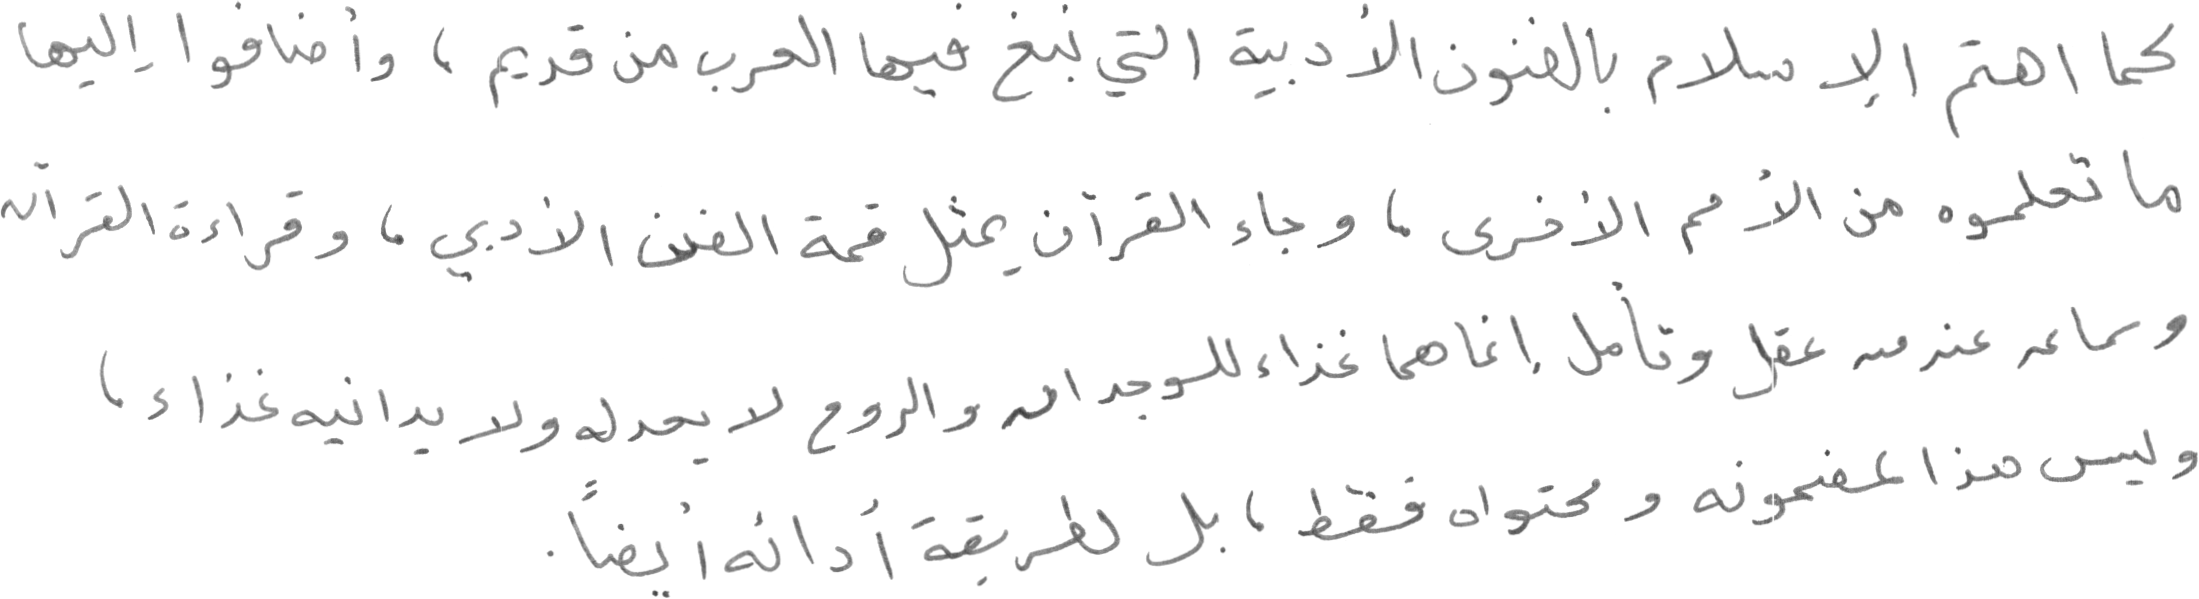 كما اهتم الإسلام بالفنون الأدبية التي نبغ فيها العرب من قديم ، وأضافوا إليها
ما تعلموه من الأمم الأخرى ، وجاء القرآن يمثل قمة الفن الأدبي ، وقراءة القرآن
وسماعه عند من عقل وتأمل إنما هما غذاء للوجدان والروح لا يعدله ولا يدانيه غذاء ،
وليس هذا لمضمونه ومحتواه فقط ، بل لطريقة أدائه أيضاً .